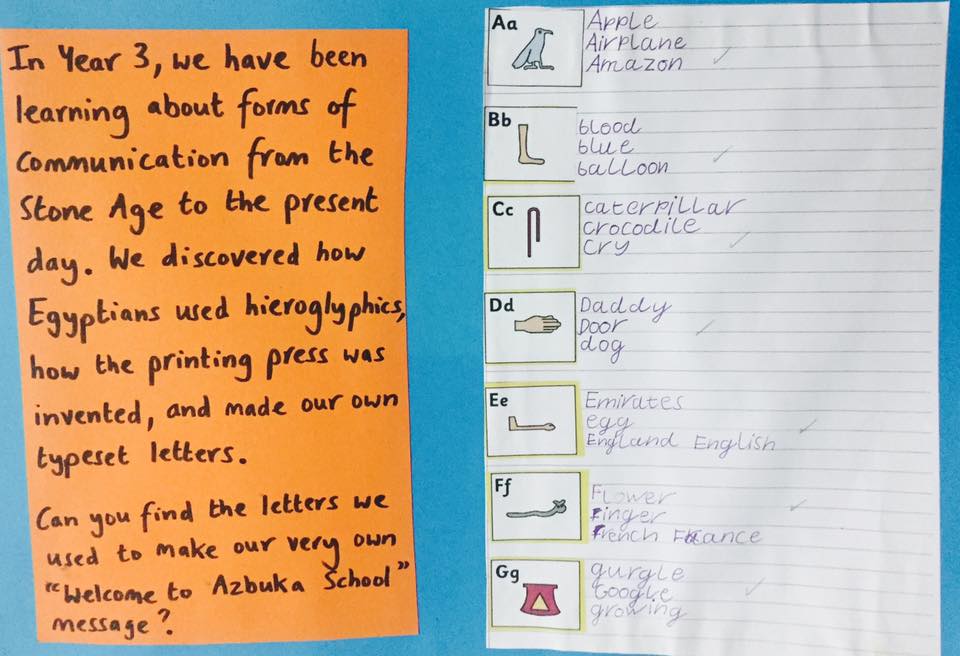 In Year 3, we have been
learning about forms of
communication from the
Stone Age to the present
day. We discovered how
Egyptians used hieroglyphics,
how the printing press was
invented, and made our own
typeset letters.
Can you find the letters we
used to make our very own
"Welcome to Azbuka School"
message?
Aa
Apple
Airplane
Amazon
Bb
blood
blue
balloon
Cc
caterpillar
crocodile
cry
Dd
Daddy
Door
dog
Ee
Emirates
egg
England English
Ff
Flower
Finger
French France
Gg
gurgle
Google
growing